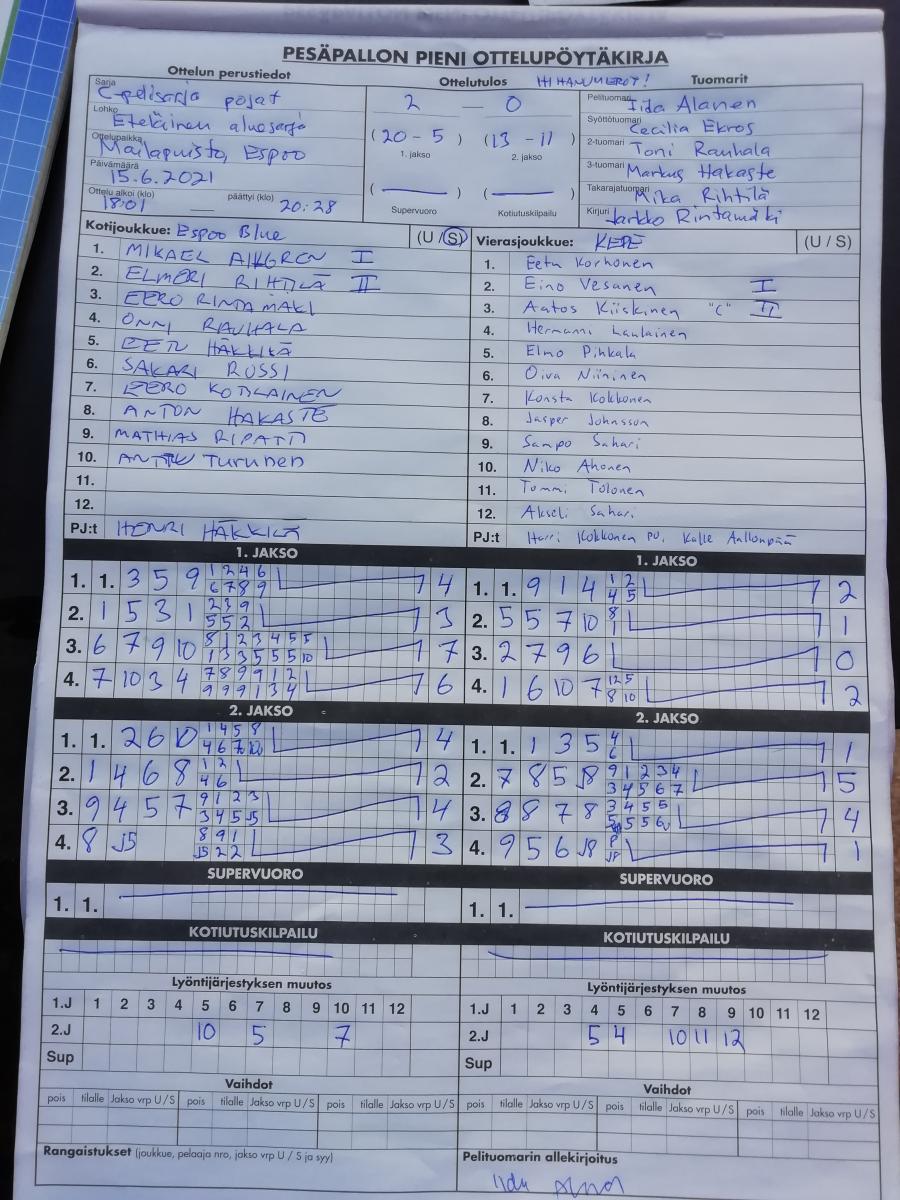 PESÄPALLON PIENI OTTELUPÖYTÄKIRJA
Ottelun perustiedot
Sarja C-pelisarja pojat
Lohko Eteläinen aluesarja
Ottelupaikka Mailapuisto, Espoo
Päivämäärä 15.6.2021
Ottelu alkoi (klo) 18:01 päättyi (klo) 20:28
Ottelutulos
2 — 0
(20 - 5) (13 - 11)
1. jakso 2. jakso
( — ) ( — )
Supervuoro Kotiutuskilpailu
Tuomarit
Pelituomari Iida Alanen
Syöttötuomari Cecilia Ekros
2-tuomari Toni Rauhala
3-tuomari Markus Hakaste
Takarajatuomari Mika Rihtilä
Kirjuri Jarkko Rintamäki
Kotijoukkue: Espoo Blue (U / S)
1. MIKAEL AHLGREN I
2. ELMERI RIHTILÄ II
3. EERO RINTAMÄKI
4. ONNI RAUHALA
5. EETU HÄKKILÄ
6. SAKARI ROSSI
7. EERO KOTILAINEN
8. ANTON HAKASTE
9. MATHIAS RIPATTI
10. Turunen
11.
12.
PJ:t HENRI HÄKKILÄ
Vierasjoukkue: KEPE (U / S)
1. Eetu Korhonen
2. Eino Vesanen I
3. Aatos Kiiskinen "C" II
4. Hermanni Laulainen
5. Elmo Pihkala
6. Oiva Niininen
7. Konsta Kokkonen
8. Jasper Johnsson
9. Sampo Sahari
10. Niko Ahonen
11. Tommi Tolonen
12. Akseli Sahari
PJ:t Harri Kokkonen PV, Kalle Aallonpää
1. JAKSO
1. 1. 3 5 9 1 2 4 6 4
6 7 8 9
2. 1 5 3 1 2 3 9 3
5 5 2
3. 6 7 9 10 8 1 2 3 4 5 5 7
1 3 3 5 5 5 10
4. 7 10 3 4 7 8 9 9 1 2 6
9 9 9 1 3 4
1. JAKSO
1. 1. 9 1 4 1 2 2
4 5
2. 5 5 7 10 8 1
1
3. 2 7 9 6 0
4. 1 6 10 7 12 5 2
8 10
2. JAKSO
1. 1. 2 6 10 1 4 5 8 4
4 6 7 10
2. 1 4 6 8 1 2 2
4 6
3. 9 4 5 7 9 1 2 3 4
3 4 5 J5
4. 8 J5 8 9 1 3
J5 2 2
2. JAKSO
1. 1. 1 3 5 4 1
6
2. 7 8 5 J8 9 1 2 3 4 5
3 4 5 6 7
3. 8 8 7 8 3 4 5 5 4
5 5 6
4. 9 5 6 J8 8 1
J8
SUPERVUORO
1. 1.
SUPERVUORO
1. 1.
KOTIUTUSKILPAILU
KOTIUTUSKILPAILU
Lyöntijärjestyksen muutos
1.J 1 2 3 4 5 6 7 8 9 10 11 12
2.J 10 5 7
Sup
Lyöntijärjestyksen muutos
1.J 1 2 3 4 5 6 7 8 9 10 11 12
2.J 5 4 10 11 12
Sup
Vaihdot
pois tilalle Jakso vrp U/S pois tilalle Jakso vrp U/S pois tilalle Jakso vrp U/S
Vaihdot
pois tilalle Jakso vrp U/S pois tilalle Jakso vrp U/S pois tilalle Jakso vrp U/S
Rangaistukset (joukkue, pelaaja nro, jakso vrp U / S ja syy)
Pelituomarin allekirjoitus